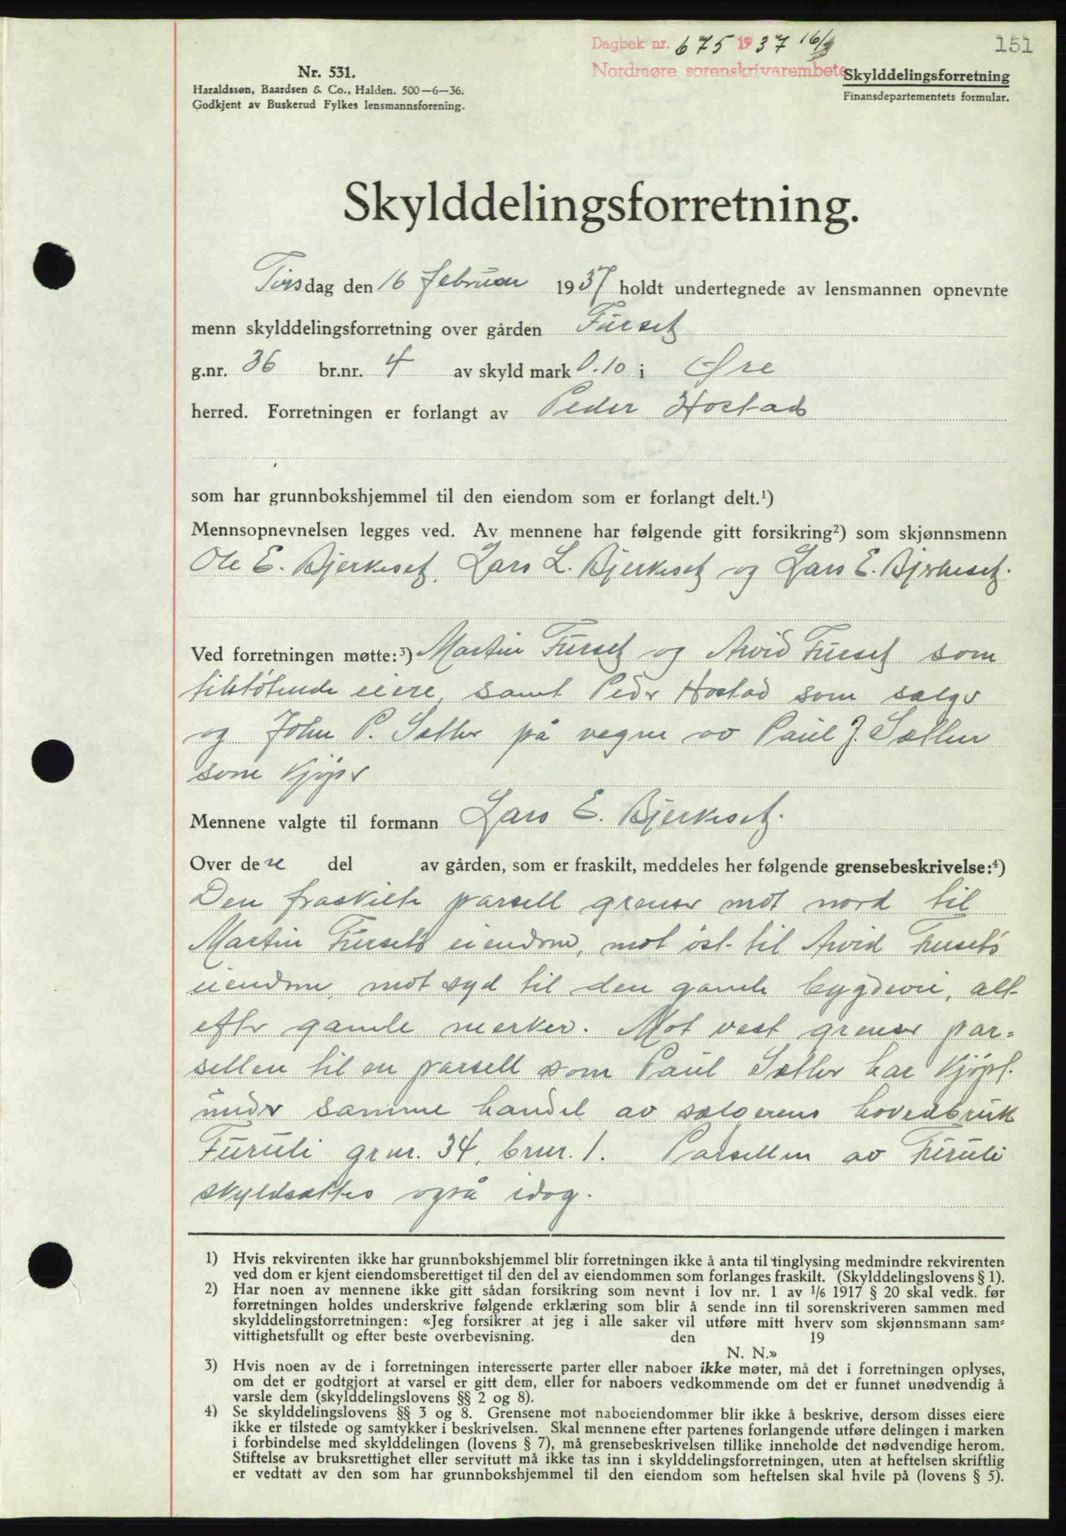 Dagbok nr. 675 1937 16/3
151
Nordmøre sorenskrivarembete
Nr. 531.
Haraldssøn, Baardsen & Co., Halden. 500—6—36.
Godkjent av Buskerud Fylkes lensmannsforening.
Skylddelingsforretning
Finansdepartementets formular.
Skylddelingsforretning.
Tirsdag den 16 februar 1937 holdt undertegnede av lensmannen opnevnte
menn skylddelingsforretning over gården Furset
g.nr. 36 br.nr. 4 av skyld mark 0.10 i Øre
herred. Forretningen er forlangt av Peder Hostad
som har grunnbokshjemmel til den eiendom som er forlangt delt.¹)
Mennsopnevnelsen legges ved. Av mennene har følgende gitt forsikring²) som skjønnsmenn
Ole E. Bjerkeset, Lars L. Bjerkeset og Lars E. Bjerkeset.
Ved forretningen møtte:³) Martin Furset og Arvid Furset som
tilstøtende eiere, samt Peder Hostad som selger
og John P. Sæther på vegne av Paul J. Sæther
som kjøper
Mennene valgte til formann Lars E. Bjerkeset.
Over dere del av gården, som er fraskilt, meddeles her følgende grensebeskrivelse:⁴)
Den fraskilte parsell grenser mot nord til
Martin Fursets eiendom, mot øst til Arvid Fursets
eiendom, mot syd til den gamle bygdevei, alt
efter gamle merker. Mot vest grenser par=
sellen til en parsell som Paul Sæther har kjøpt
under samme handel av selgerens hovedbruk
Furuli grnr. 34, brnr. 1. Parsellen av Furuli
skyldsettes også idag.
1) Hvis rekvirenten ikke har grunnbokshjemmel blir forretningen ikke å anta til tinglysing medmindre rekvirenten
ved dom er kjent eiendomsberettiget til den del av eiendommen som forlanges fraskilt. (Skylddelingslovens § 1).
2) Har noen av mennene ikke gitt sådan forsikring som nevnt i lov nr. 1 av 1/6 1917 § 20 skal vedk. før
forretningen holdes underskrive følgende erklæring som blir å sende inn til sorenskriveren sammen med
skylddelingsforretningen: «Jeg forsikrer at jeg i alle saker vil utføre mitt hverv som skjønnsmann sam=
vittighetsfullt og efter beste overbevisning. den 19
N. N.»
3) Hvis noen av de i forretningen interesserte parter eller naboer ikke møter, må det i forretningen oplyses,
om det er godtgjort at varsel er gitt dem, eller for naboers vedkommende om det er funnet unødvendig å
varsle dem (skylddelingslovens §§ 2 og 8).
4) Se skylddelingslovens §§ 3 og 8. Grensene mot naboeiendommer blir ikke å beskrive, dersom disses eiere
ikke er tilstede og samtykker i beskrivelsen. Skal mennene efter partenes forlangende utføre delingen i marken
i forbindelse med skylddelingen (lovens § 7), må grensebeskrivelsen tillike inneholde det nødvendige herom.
Stiftelse av bruksrettighet eller servitutt må ikke tas inn i skylddelingsforretningen, uten at heftelsen skriftlig
er vedtatt av den som har grunnbokshjemmel til den eiendom som heftelsen skal hvile på (lovens § 5).